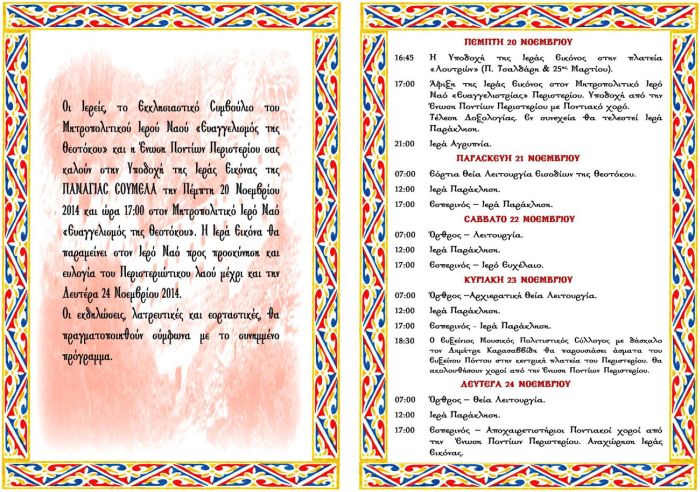 Οι Ιερείς, το Εκκλησιαστικό Συμβούλιο του
Μητροπολιτικού Ιερού Ναού «Ευαγγελισμός της
Θεοτόκου» και η Ένωση Ποντίων Περιστερίου σας
καλούν στην Υποδοχή της Ιεράς Εικόνας της
ΠΑΝΑΓΙΑΣ ΣΟΥΜΕΛΑ την Πέμπτη 20 Νοεμβρίου
2014 και ώρα 17:00 στον Μητροπολιτικό Ιερό Ναό
«Ευαγγελισμός της Θεοτόκου». Η Ιερά Εικόνα θα
παραμείνει στον Ιερό Ναό προς προσκύνηση και
ευλογία του Περιστεριώτικου λαού μέχρι και την
Δευτέρα 24 Νοεμβρίου 2014.
Οι εκδηλώσεις, λατρευτικές και εορταστικές, θα
πραγματοποιηθούν σύμφωνα με το συνημμένο
πρόγραμμα.
ΠΕΜΠΤΗ 20 ΝΟΕΜΒΡΙΟΥ
16:45 Η Υποδοχή της Ιεράς Εικόνος στην πλατεία
«Λουτρών» (Π. Τσαλδάρη & 25ης Μαρτίου).
17:00 Άφιξη της Ιεράς Εικόνος στον Μητροπολιτικό Ιερό
Ναό «Ευαγγελιστρίας» Περιστερίου. Υποδοχή από την
Ένωση Ποντίων Περιστερίου με Ποντιακό χορό.
Τέλεση Δοξολογίας. Εν συνεχεία θα τελεστεί Ιερά
Παράκληση.
21:00 Ιερά Αγρυπνία.
ΠΑΡΑΣΚΕΥΗ 21 ΝΟΕΜΒΡΙΟΥ
07:00 Εόρτια Θεία Λειτουργία Εισοδίων της Θεοτόκου.
12:00 Ιερά Παράκληση.
17:00 Εσπερινός – Ιερά Παράκληση.
ΣΑΒΒΑΤΟ 22 ΝΟΕΜΒΡΙΟΥ
07:00 Όρθρος – Λειτουργία.
12:00 Ιερά Παράκληση.
17:00 Εσπερινός – Ιερό Ευχέλαιο.
ΚΥΡΙΑΚΗ 23 ΝΟΕΜΒΡΙΟΥ
07:00 Όρθρος –Αρχιερατική Θεία Λειτουργία.
12:00 Ιερά Παράκληση.
17:00 Εσπερινός - Ιερά Παράκληση.
18:30 Ο Ευξείνιος Μουσικός Πολιτιστικός Σύλλογος με δάσκαλο
τον Δημήτρη Καρασαββίδη θα παρουσιάσει άσματα του
Ευξείνου Πόντου στην κεντρική πλατεία του Περιστερίου. Θα
ακολουθήσουν χοροί από την Ένωση Ποντίων Περιστερίου.
ΔΕΥΤΕΡΑ 24 ΝΟΕΜΒΡΙΟΥ
07:00 Όρθρος – Θεία Λειτουργία.
12:00 Ιερά Παράκληση.
17:00 Εσπερινός – Αποχαιρετιστήριοι Ποντιακοί χοροί από
την Ένωση Ποντίων Περιστερίου. Αναχώρηση Ιεράς
Εικόνας.